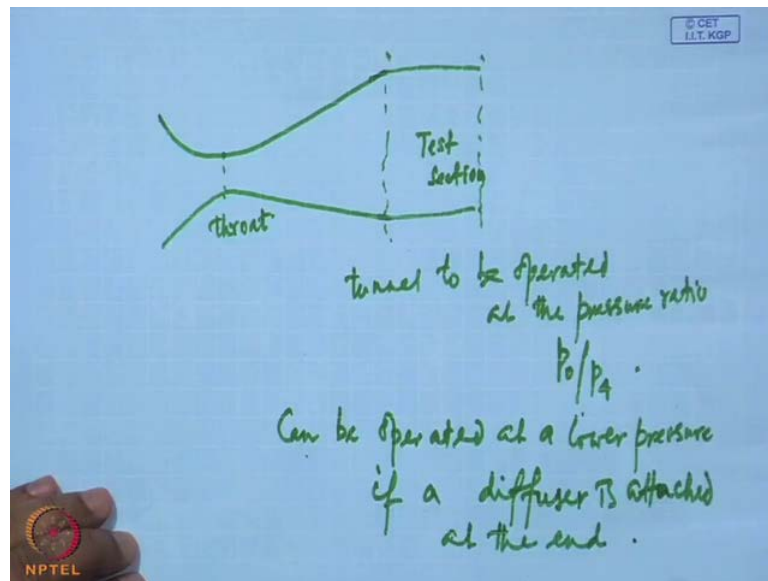 © CET
I.I.T. KGP
Test
Section
throat
tunnel to be operated
at the pressure ratio
p₀/p₄ .
Can be operated at a lower pressure
if a diffuser is attached
at the end .
NPTEL